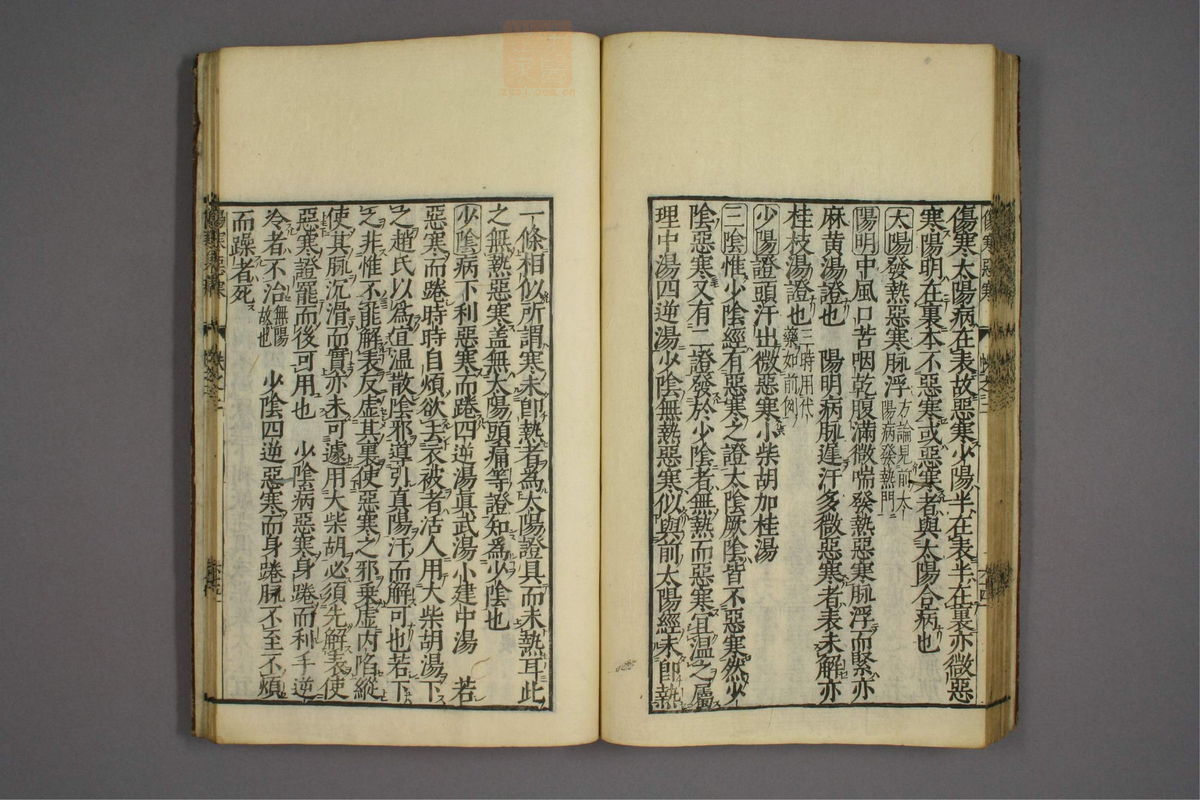 傷寒太陽病在表故惡寒少陽半在表半在裏亦微惡
寒陽明在裏本不惡寒或惡寒者與太陽合病也
太陽發熱惡寒脉浮方論見前太陽病發熱門
陽明中風口苦咽乾腹滿微喘發熱惡寒脉浮而緊亦
麻黄湯證也　陽明病脉遲汗多微惡寒者表未解亦
桂枝湯證也三時用代藥如前例
少陽證頭汗出微惡寒小柴胡加桂湯
三陰惟少陰經有惡寒之證太陰厥陰皆不惡寒然少
陰惡寒又有二證發於少陰者無熱而惡寒宜温之屬
理中湯四逆湯少陰無熱惡寒似與前太陽經未即熱
一條相似所謂寒未即熱者為太陽證具而未熱耳此
之無熱惡寒盖無太陽頭痛等證知為少陰也
少陰病下利惡寒而踡四逆湯眞武湯小建中湯　若
惡寒而踡時時自煩欲去衣被者活人用大柴胡湯下
之趙氏以為宜温散陰邪導引真陽汗而解可也若下
之非惟不能解表反虚其裏使惡寒之邪乗虚内陷縱
使其脉沉滑而實亦未可遽用大柴胡必須先解表使
惡寒證罷而後可用也　少陰病惡寒身踡而利手逆
冷者不治無陽故也　少陰四逆惡寒而身踡脉不至不煩
而躁者死
傷寒惡寒